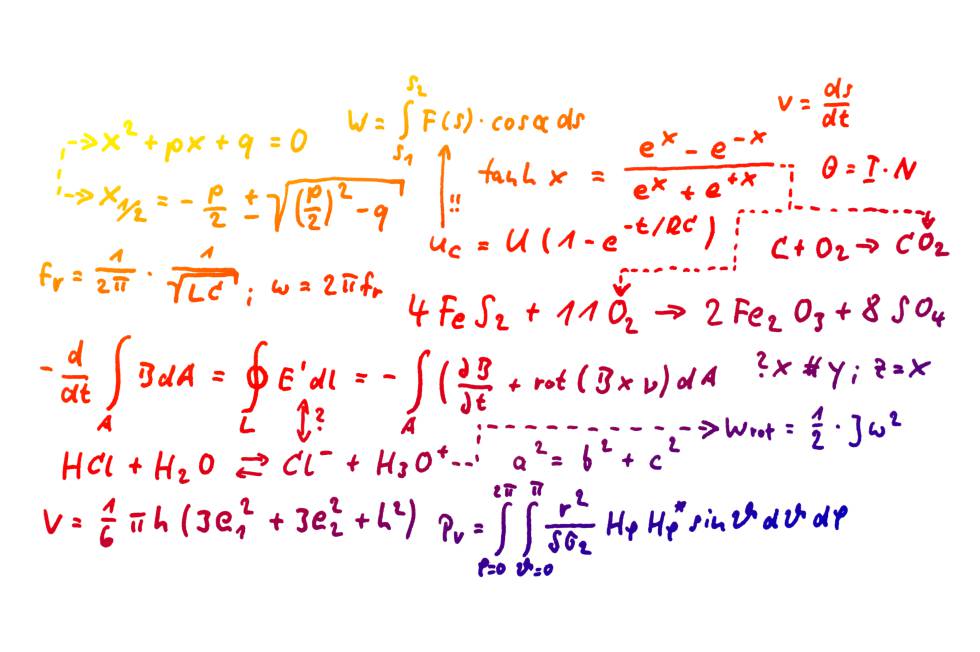 x² + px + q = 0
W = ∫_{s₁}^{s₂} F(s) · cos α ds
v = ds/dt
x_{1/2} = - p/2 ± √((p/2)² - q)
!!
tanh x = (e^x - e^{-x})/(e^x + e^{+x})
θ = I · N
u_C = U (1 - e^{-t/RC})
C + O₂ → CO₂
f_r = 1/2π · 1/√LC ; ω = 2πf_r
4 FeS₂ + 11 O₂ → 2 Fe₂O₃ + 8 SO₄
- d/dt ∫_A B dA = ∮_L E' dl = - ∫_A (∂B/∂t + rot (B x v) dA
? x # y ; z = x
?
W_rot = ½ · J ω²
HCl + H₂O ⇄ Cl⁻ + H₃O⁺
a² = b² + c²
V = 1/6 π h (3e₁² + 3e₂² + h²)
P_v = ∫_{φ=0}^{2π} ∫_{ϑ=0}^{π} r²/δσ₂ H_φ H_φ* sin ϑ dϑ dφ